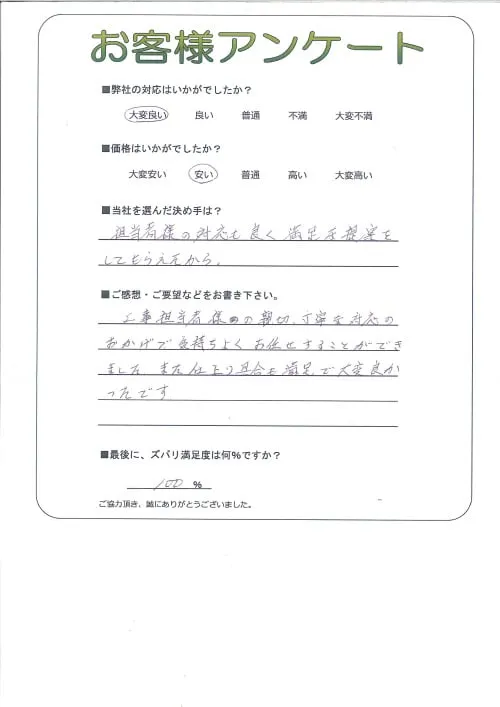 お客様アンケート
■弊社の対応はいかがでしたか？
大変良い 良い 普通 不満 大変不満
■価格はいかがでしたか？
大変安い 安い 普通 高い 大変高い
■当社を選んだ決め手は？
担当者様の対応も良く満足な提案を
してもらえたから。
■ご感想・ご要望などをお書き下さい。
工事担当者様の親切、丁寧な対応の
おかげで気持ちよくお任せすることができ
ました。また仕上り具合も満足で大変良か
ったです
■最後に、ズバリ満足度は何%ですか？
100 %
ご協力頂き、誠にありがとうございました。